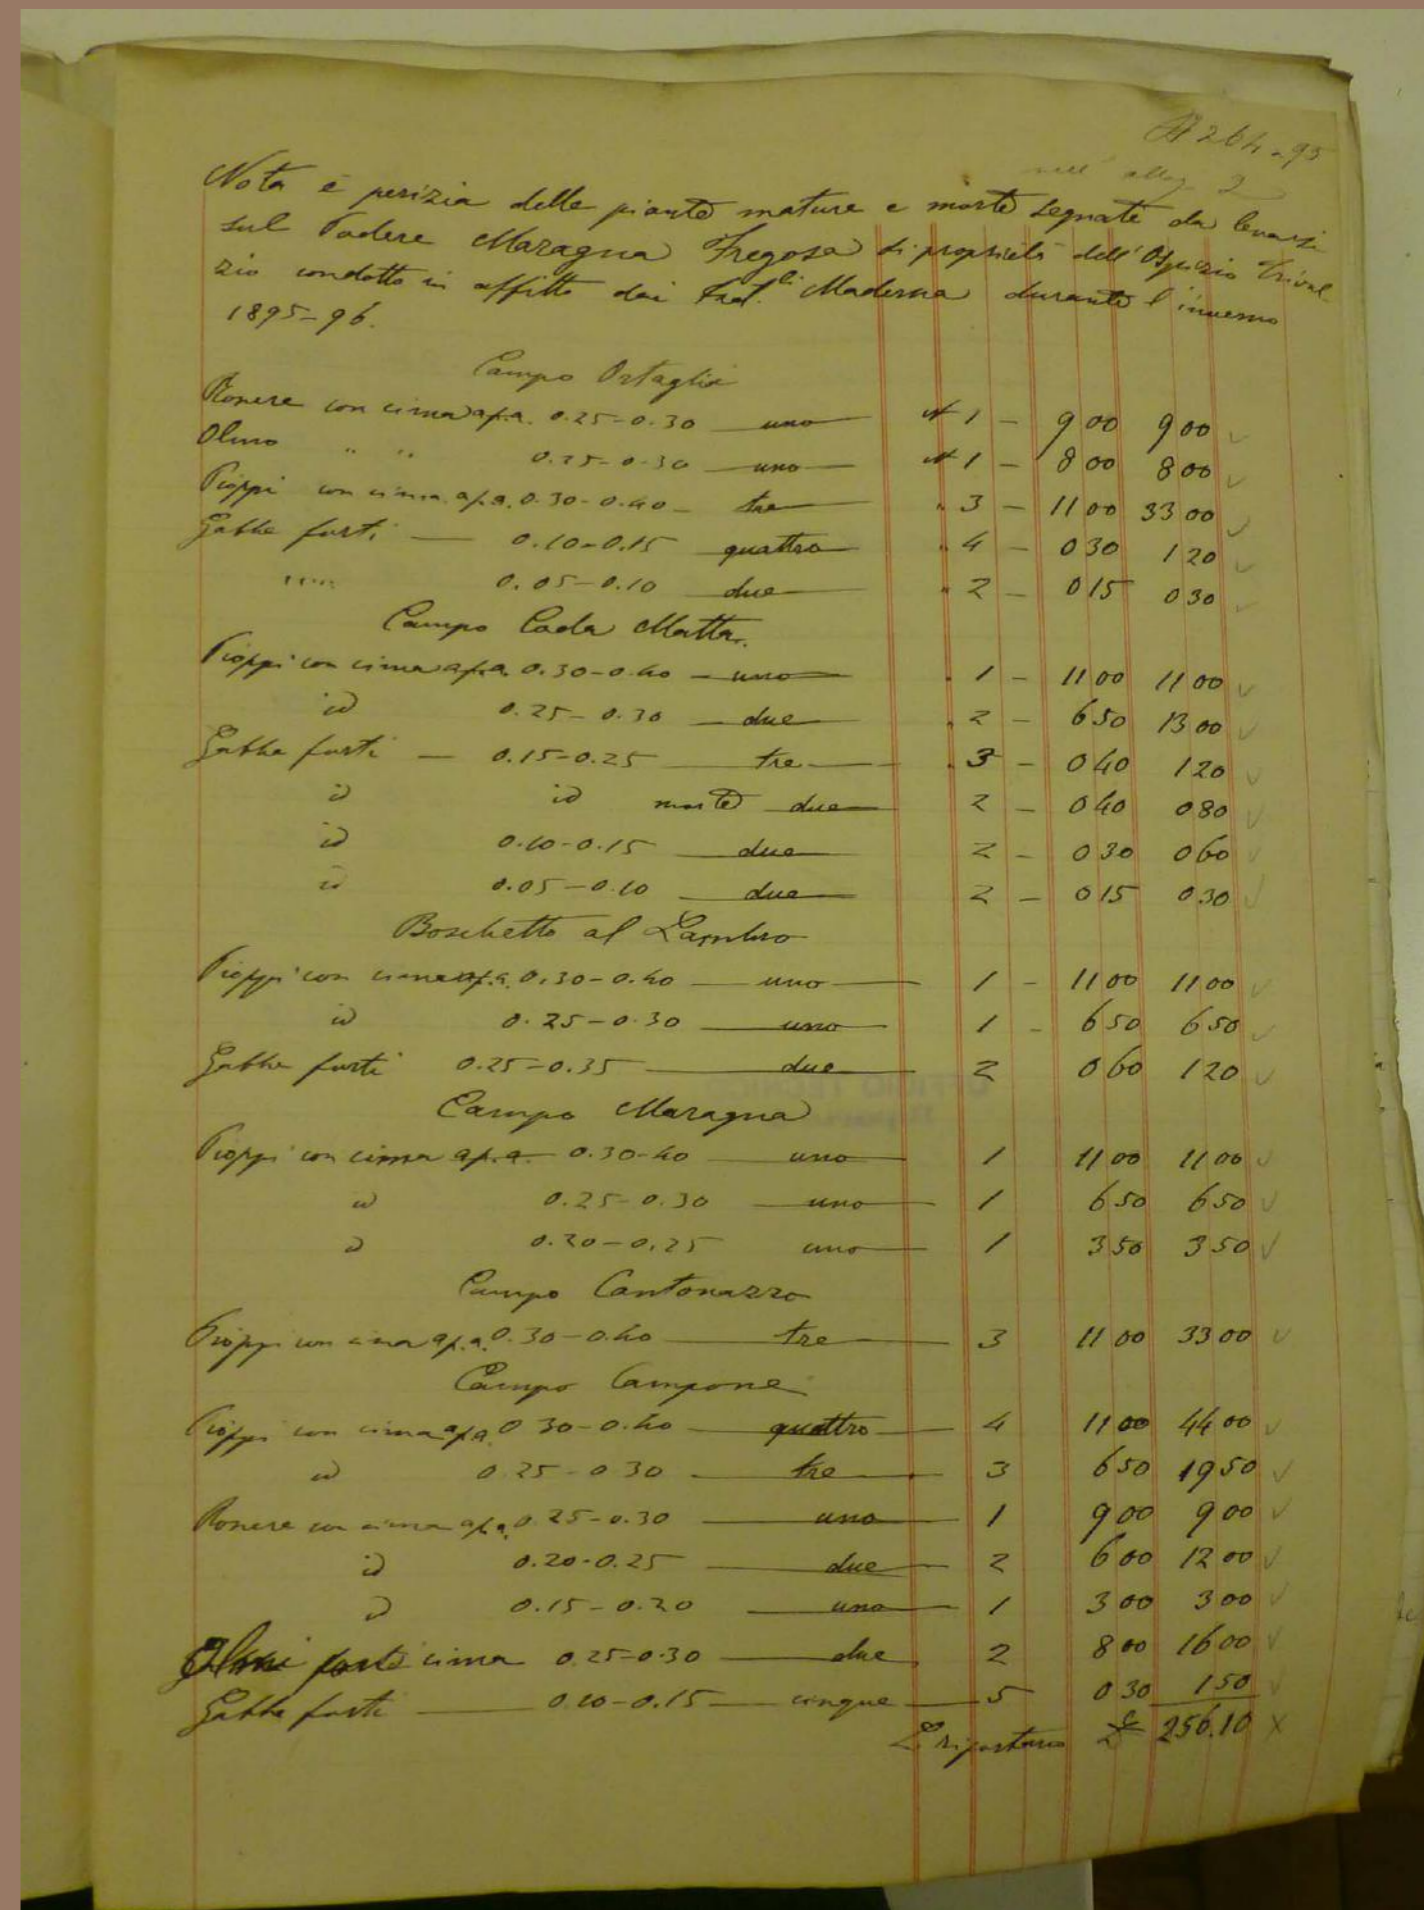 264-95
nell' alleg 2
Nota e perizia delle piante mature e morte segnate da levarsi
sul Podere Maragna Fregosa di proprietà dell'Ospizio Trivul
zio condotto in affitto dai Frat.lli Maderna durante l'inverno
1895-96.
Campo Ortaglia
Rovere con cima a p.a. 0.25-0.30 uno N 1 - 9 00 9 00
Olmo " " 0.25-0.30 uno N 1 - 8 00 8 00
Pioppi con cima a p.a. 0.30-0.40 - tre " 3 - 11 00 33 00
Gabbe forti — 0.10-0.15 quattro " 4 - 0 30 1 20
" " 0.05-0.10 due " 2 - 0 15 0 30
Campo Coda Matta
Pioppi con cima a p.a. 0.30-0.40 - uno " 1 - 11 00 11 00
id 0.25-0.30 due " 2 - 6 50 13 00
Gabbe forti — 0.15-0.25 tre " 3 - 0 40 1 20
id id morte due 2 - 0 40 0 80
id 0.10-0.15 due 2 - 0 30 0 60
id 0.05-0.10 due 2 - 0 15 0 30
Boschetto al Lambro
Pioppi con cima a p.a. 0.30-0.40 uno 1 - 11 00 11 00
id 0.25-0.30 uno 1 - 6 50 6 50
Gabbe forti 0.25-0.35 due 2 0 60 1 20
Campo Maragna
Pioppi con cima a p.a. 0.30-40 uno 1 11 00 11 00
id 0.25-0.30 uno 1 6 50 6 50
id 0.20-0.25 uno 1 3 50 3 50
Campo Cantonazzo
Pioppi con cima a p.a. 0.30-0.40 tre 3 11 00 33 00
Campo Campone
Pioppi con cima a p.a. 0 30-0.40 quattro 4 11 00 44 00
id 0.25-0 30 tre 3 6 50 19 50
Rovere con cima a p.a. 0 25-0.30 uno 1 9 00 9 00
id 0.20-0.25 due 2 6 00 12 00
id 0.15-0.20 uno 1 3 00 3 00
Olmi cima 0.25-0.30 due 2 8 00 16 00
Gabbe forti — 0.10-0.15 cinque 5 0 30 1 50
riportarsi £ 256.10 X